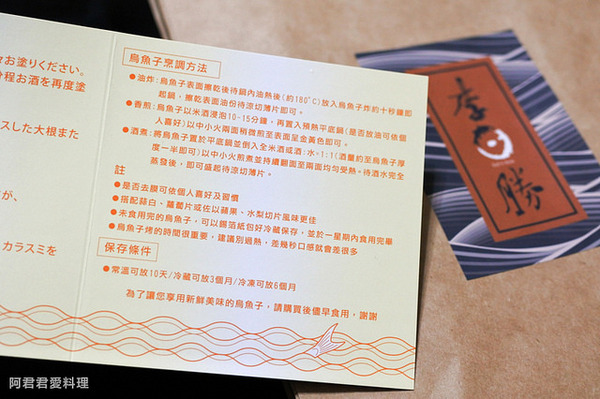 お塗りください。
程お酒を再度塗
スした大根また
が、
カラスミを
烏魚子烹調方法
●油炸:烏魚子表面擦乾後待鍋內油熱後(約180°C)放入烏魚子炸約十秒鐘即
起鍋,擦乾表面油份待涼切薄片即可。
●香煎:烏魚子以米酒浸泡10-15分鐘,再置入預熱平底鍋(是否放油可依個
人喜好)以中小火兩面稍微煎至表面呈金黃色即可。
●酒煮:將烏魚子置於平底鍋並倒入全米酒或酒:水=1:1(酒量約至烏魚子厚
度一半即可)以中小火煎煮並持續翻面至兩面均勻受熱。待酒水完全
蒸發後,即可盛起待涼切薄片。
註
●是否去膜可依個人喜好及習慣
●搭配蒜白、蘿蔔片或佐以蘋果、水梨切片風味更佳
●未食用完的烏魚子,可以錫箔紙包好冷藏保存,並於一星期內食用完畢
●烏魚子烤的時間很重要,建議別過熱,差幾秒口感就會差很多
保存條件
●常溫可放10天/冷藏可放3個月/冷凍可放6個月
為了讓您享用新鮮美味的烏魚子,請購買後儘早食用,謝謝
李日勝
阿君君愛料理